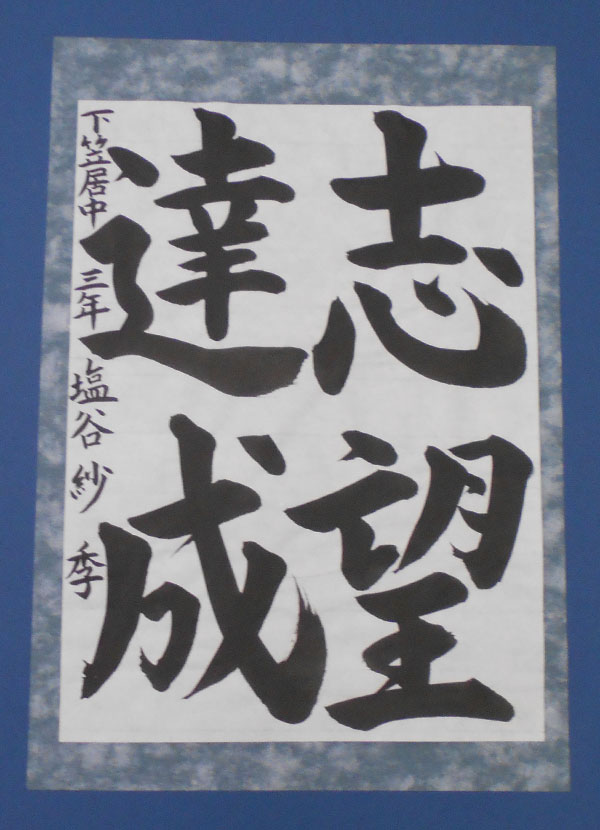 志望
達成
下笠居中 三年 塩谷紗季